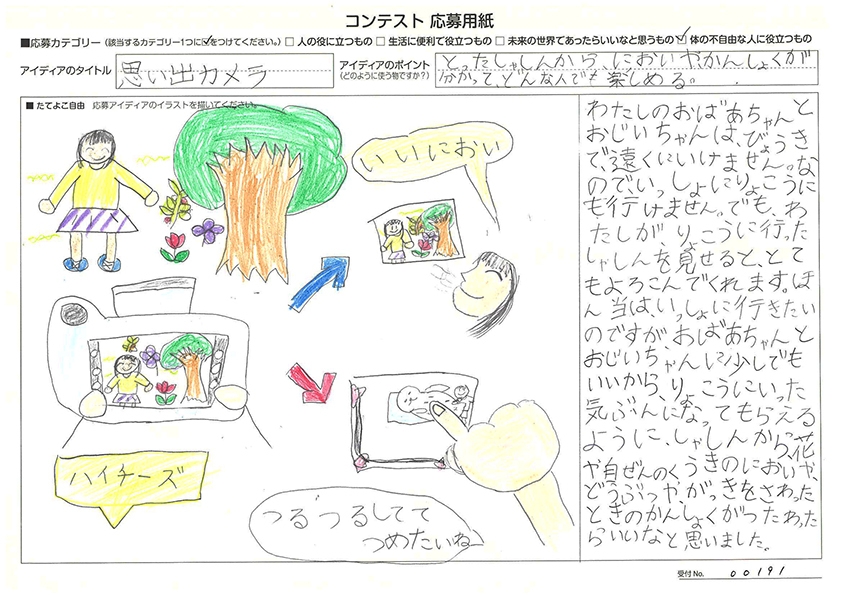 コンテスト 応募用紙
■応募カテゴリー (該当するカテゴリー1つに☑をつけてください。) □ 人の役に立つもの □ 生活に便利で役立つもの □ 未来の世界であったらいいなと思うもの ☑ 体の不自由な人に役立つもの
アイディアのタイトル
思い出カメラ
アイディアのポイント
(どのように使う物ですか?)
とったしゃしんから、においやかんしょくが
分かって、どんな人でも楽しめる。
■ たてよこ自由 応募アイディアのイラストを描いてください。
いいにおい
ハイチーズ
つるつるしてて
つめたいね
わたしのおばあちゃんと
おじいちゃんは、びょうき
で、遠くにいけません。な
のでいっしょにりょこうに
も行けません。でも、わ
たしが、りょこうに行った
しゃしんを見せると、とて
もよろこんでくれます。ほ
ん当は、いっしょに行きたい
のですが、おばあちゃんと
おじいちゃんに少しでも
いいから、りょこうにいった
気ぶんになってもらえる
ように、しゃしんから、花
や自ぜんのくうきのにおいや、
どうぶつや、がっきをさわった
ときのかんしょくがつたわった
らいいなと思いました。
受付 No. 00191